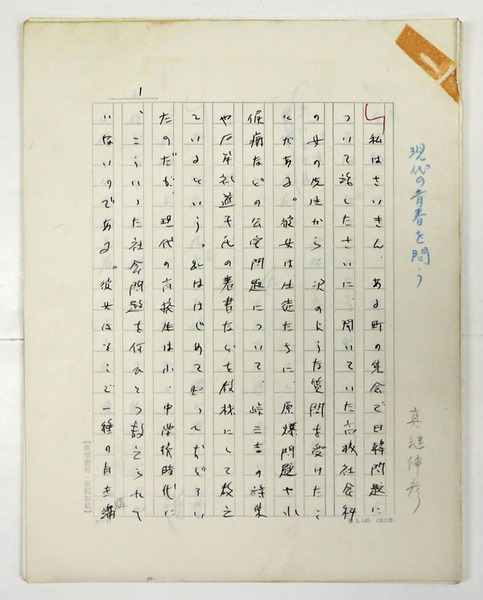 現代の青春を問う
真継伸彦
1
私はさいきん、ある町の集会で日韓問題に
ついて話したさいに、聞いていた高校社会科
の女の先生から、次のような質問を受けたこ
とがある。彼女は生徒たちに、原爆問題や水
俣病などの公害問題について、峠三吉の詩集
や石牟礼道子氏の著書などを教材にして教え
ているという。私ははじめて知っておどろい
たのだが、現代の高校生は小、中学校時代に
、こういった社会問題を何ひとつ教えられて
いないのである。彼女はそこで一種の自主講